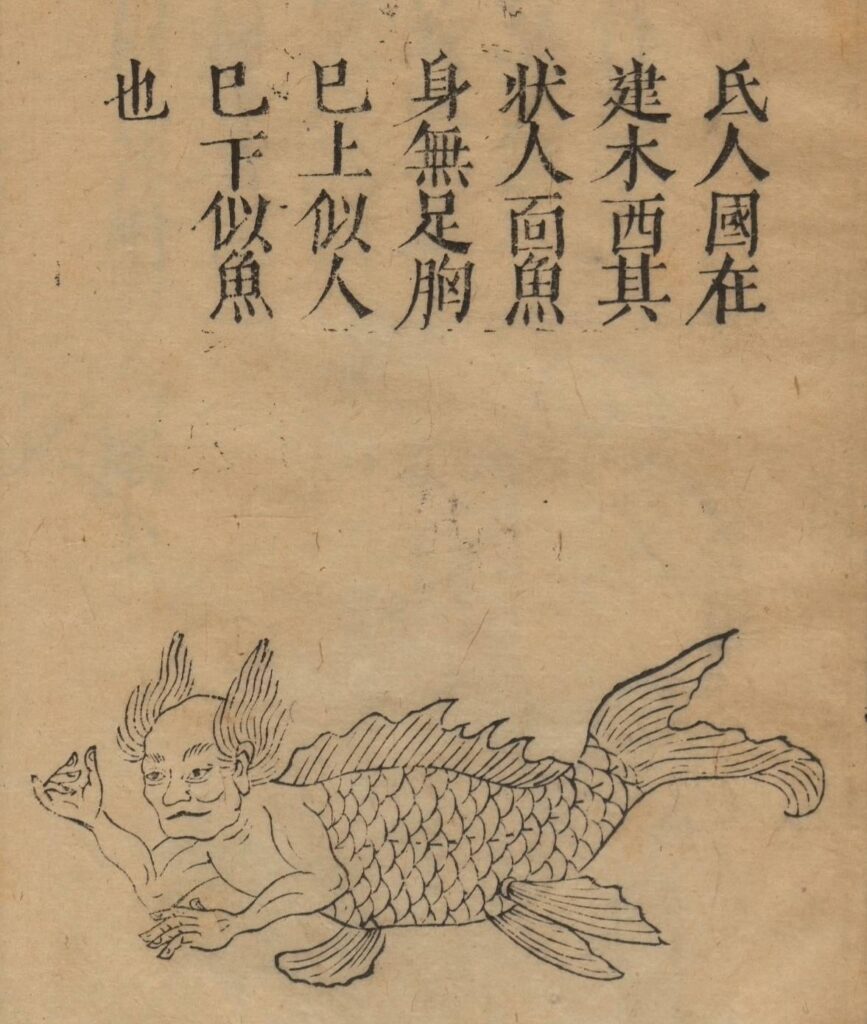 氐人國在
建木西其
狀人面魚
身無足胸
已上似人
已下似魚
也